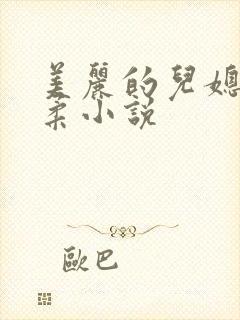 美麗的兒媳
柔小說
歐巴